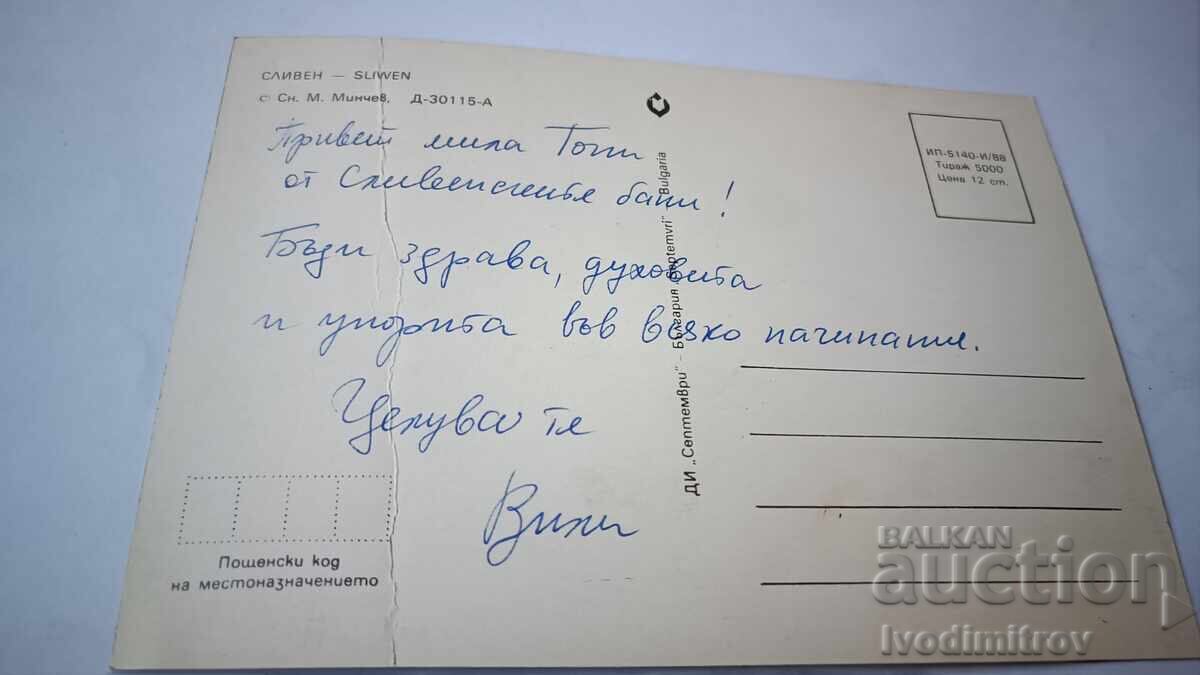 СЛИВЕН — SLIWEN
© Сн. М. Минчев, Д-30115-А
Привет мила Тони
от Сливенските бани!
Бъди здрава, духовита
и упорита във всяко начинание.
Целува те
Вили
ИП-5140-И/88
Тираж 5000
Цена 12 ст.
ДИ „Септември" – България "Septemvri" Bulgaria
Пощенски код
на местоназначението
BALKAN
auction
Ivodimitrov